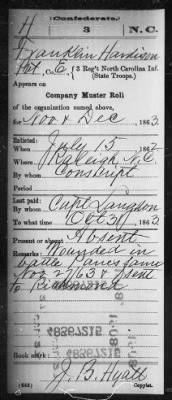 (Confederate.)
H 3 N.C.
Franklin Hardison
Pvt, Co. E, 3 Reg't North Carolina Inf.
(State Troops.)
Appears on
Company Muster Roll
of the organization named above,
for Nov & Dec, 1863.
Enlisted:
When July 15, 1862
Where Raleigh N.C.
By whom Conscript
Period
Last paid:
By whom Capt Langdon
To what time Oct 31, 1863.
Present or absent Absent
Remarks: Wounded in
battle Paines farm
Nov 27/63 & sent
to Richmond
48367215
48367215
Book mark:
J. B. Hyatt
(642) Copyist.